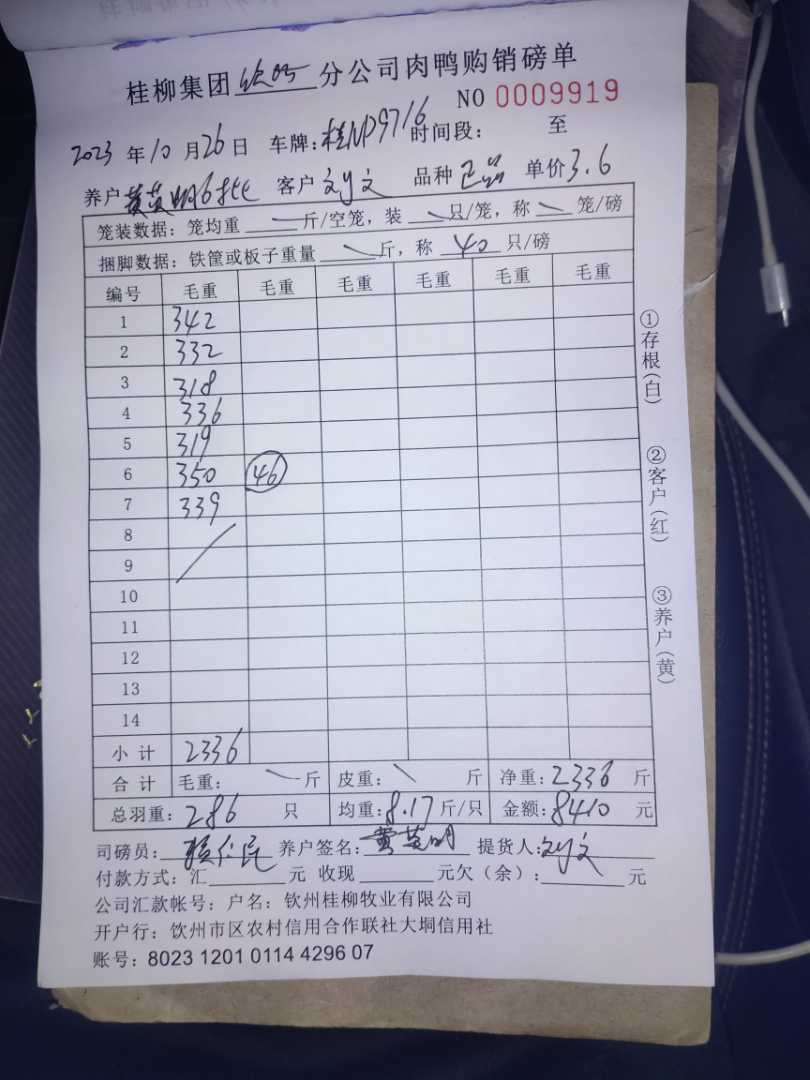 桂柳集团 钦州 分公司肉鸭购销磅单
NO 0009919
2023 年 10 月 26 日 车牌: 桂ND9716 时间段: 至
养户 黄英明6批 客户 刘文 品种 正品 单价 3.6
笼装数据: 笼均重 斤/空笼, 装 只/笼, 称 笼/磅
捆脚数据: 铁筐或板子重量 斤, 称 40 只/磅
编号 毛重 毛重 毛重 毛重 毛重 毛重
1 342
2 332
3 318
4 336
5 319
6 350 46
7 339
8
9
10
11
12
13
14
小计 2336
合计 毛重: 斤 皮重: 斤 净重: 2336 斤
总羽重: 286 只 均重: 8.17 斤/只 金额: 8410 元
司磅员: 养户签名: 黄英明 提货人: 刘文
付款方式: 汇 元 收现 元欠(余): 元
公司汇款帐号: 户名: 钦州桂柳牧业有限公司
开户行: 钦州市区农村信用合作联社大垌信用社
账号: 8023 1201 0114 4296 07
①存根(白)
②客户(红)
③养户(黄)